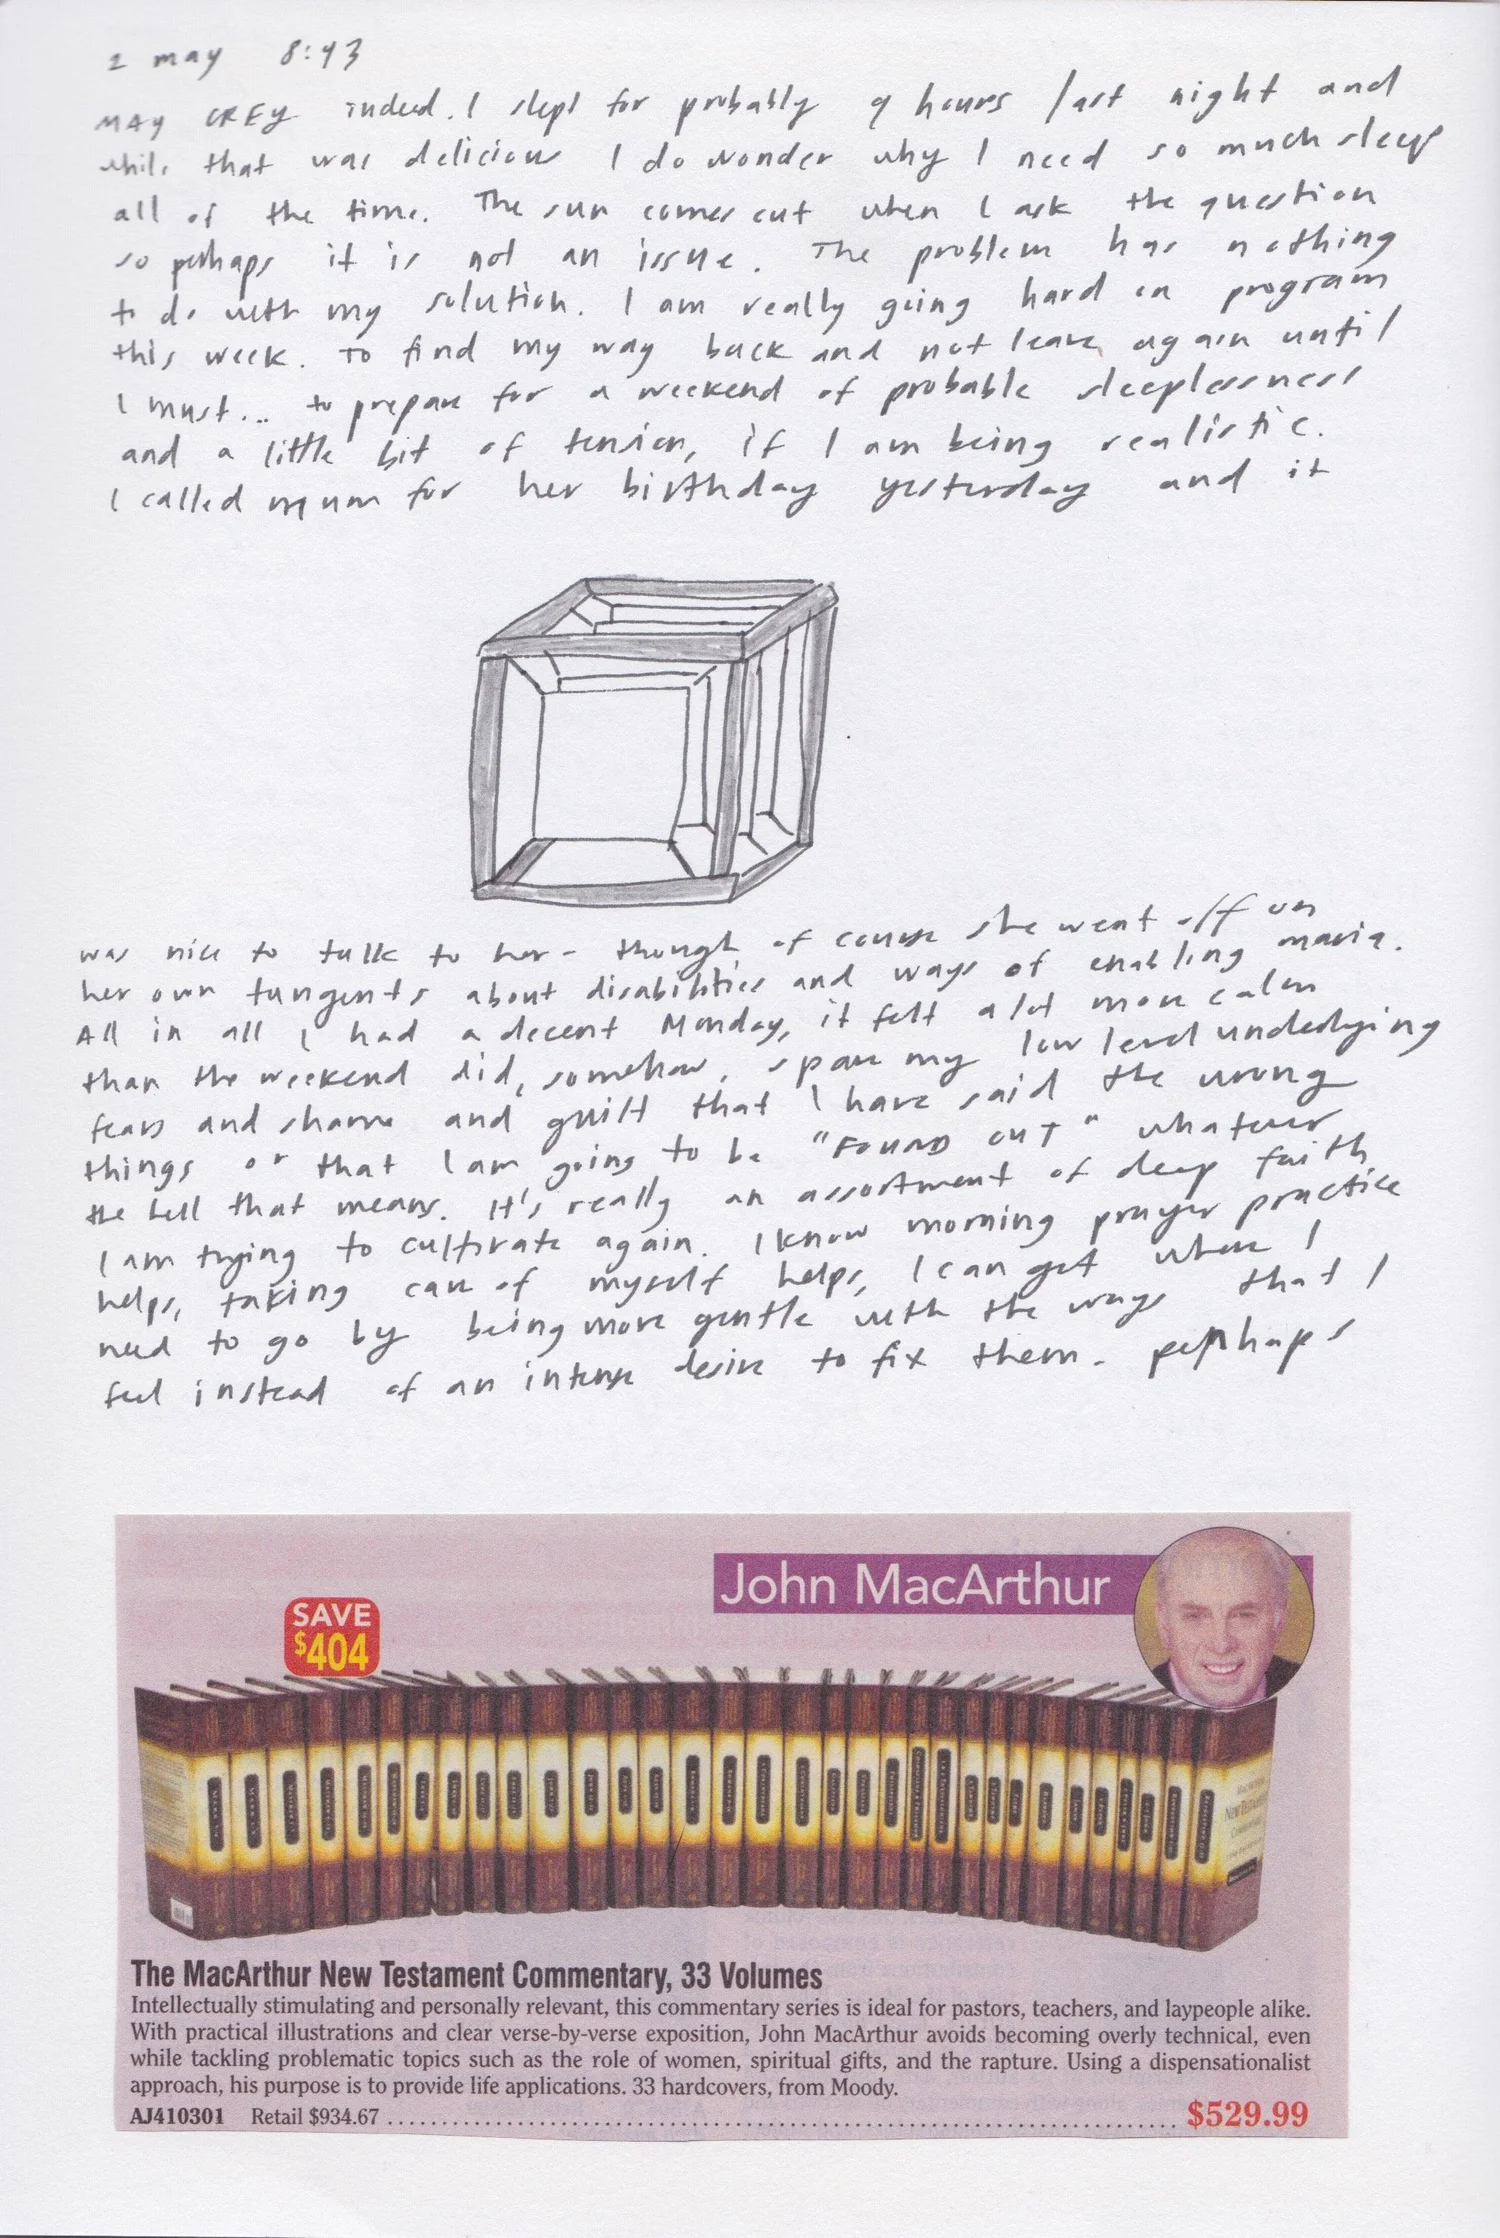 2 may 8:43
MAY GREY indeed. I slept for probably 9 hours last night and
while that was delicious I do wonder why I need so much sleep
all of the time. The sun comes out when I ask the question
so perhaps it is not an issue. The problem has nothing
to do with my solution. I am really going hard on program
this week. To find my way back and not leave again until
I must... to prepare for a weekend of probable sleeplessness
and a little bit of tension, if I am being realistic.
I called mum for her birthday yesterday and it
was nice to talk to her - though of course she went off on
her own tangents about disabilities and ways of enabling maria.
All in all I had a decent Monday, it felt a lot more calm
than the weekend did, somehow, spare my low level underlying
fears and shame and guilt that I have said the wrong
things or that I am going to be "FOUND OUT" whatever
the hell that means. It's really an assortment of deep faith
I am trying to cultivate again. I know morning prayer practice
helps, taking care of myself helps, I can get where I
need to go by being more gentle with the ways that I
feel instead of an intense desire to fix them. perhaps
John MacArthur
SAVE
$404
NEW TESTAMENT
The MacArthur New Testament Commentary, 33 Volumes
Intellectually stimulating and personally relevant, this commentary series is ideal for pastors, teachers, and laypeople alike.
With practical illustrations and clear verse-by-verse exposition, John MacArthur avoids becoming overly technical, even
while tackling problematic topics such as the role of women, spiritual gifts, and the rapture. Using a dispensationalist
approach, his purpose is to provide life applications. 33 hardcovers, from Moody.
AJ410301 Retail $934.67 ........................................ $529.99